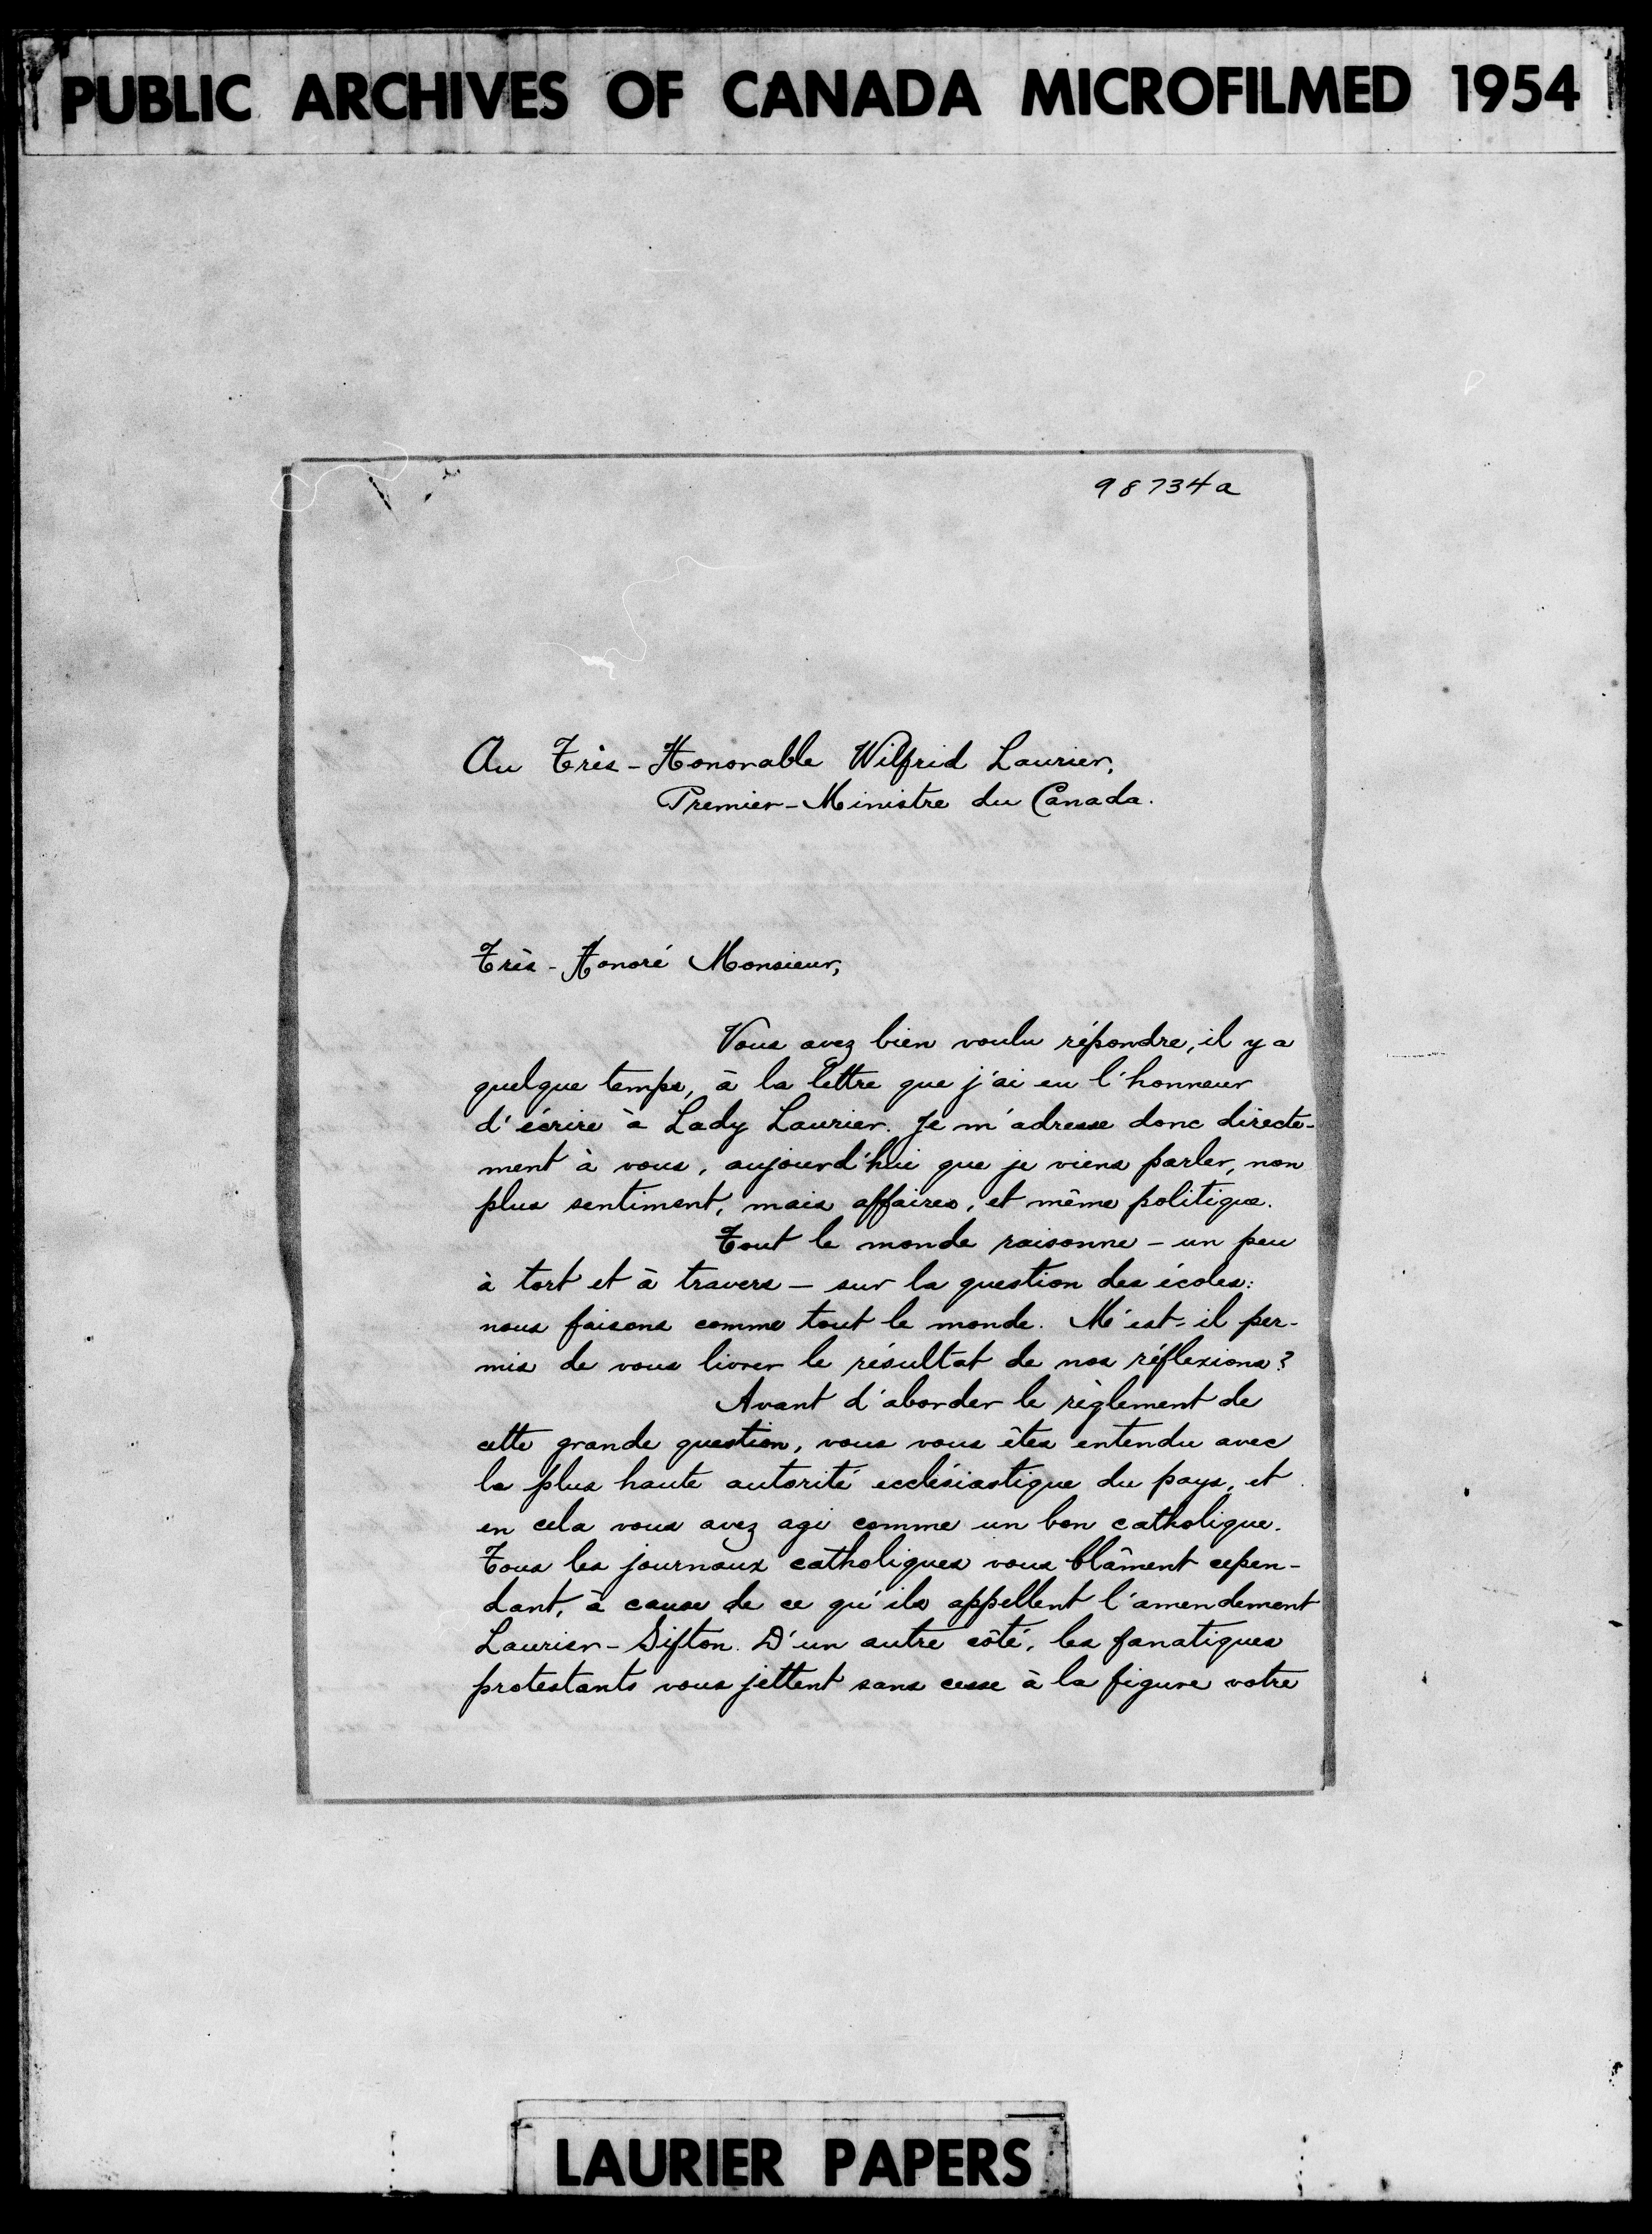 PUBLIC ARCHIVES OF CANADA MICROFILMED 1954
98734a
Au Très-Honorable Wilfrid Laurier,
Premier-Ministre du Canada.
Très-Honoré Monsieur,
Vous avez bien voulu répondre, il y a
quelque temps, à la lettre que j'ai eu l'honneur
d'écrire à Lady Laurier. Je m'adresse donc directe-
ment à vous, aujourd'hui que je viens parler, non
plus sentiment, mais affaires, et même politique.
Tout le monde raisonne - un peu
à tort et à travers - sur la question des écoles:
nous faisons comme tout le monde. M'est-il per-
mis de vous livrer le résultat de nos réflexions?
Avant d'aborder le règlement de
cette grande question, vous vous êtes entendu avec
la plus haute autorité ecclésiastique du pays, et
en cela vous avez agi comme un bon catholique.
Tous les journaux catholiques vous blâment cepen-
dant, à cause de ce qu'ils appellent l'amendement
Laurier-Sifton. D'un autre côté, les fanatiques
protestants vous jettent sans cesse à la figure votre
LAURIER PAPERS